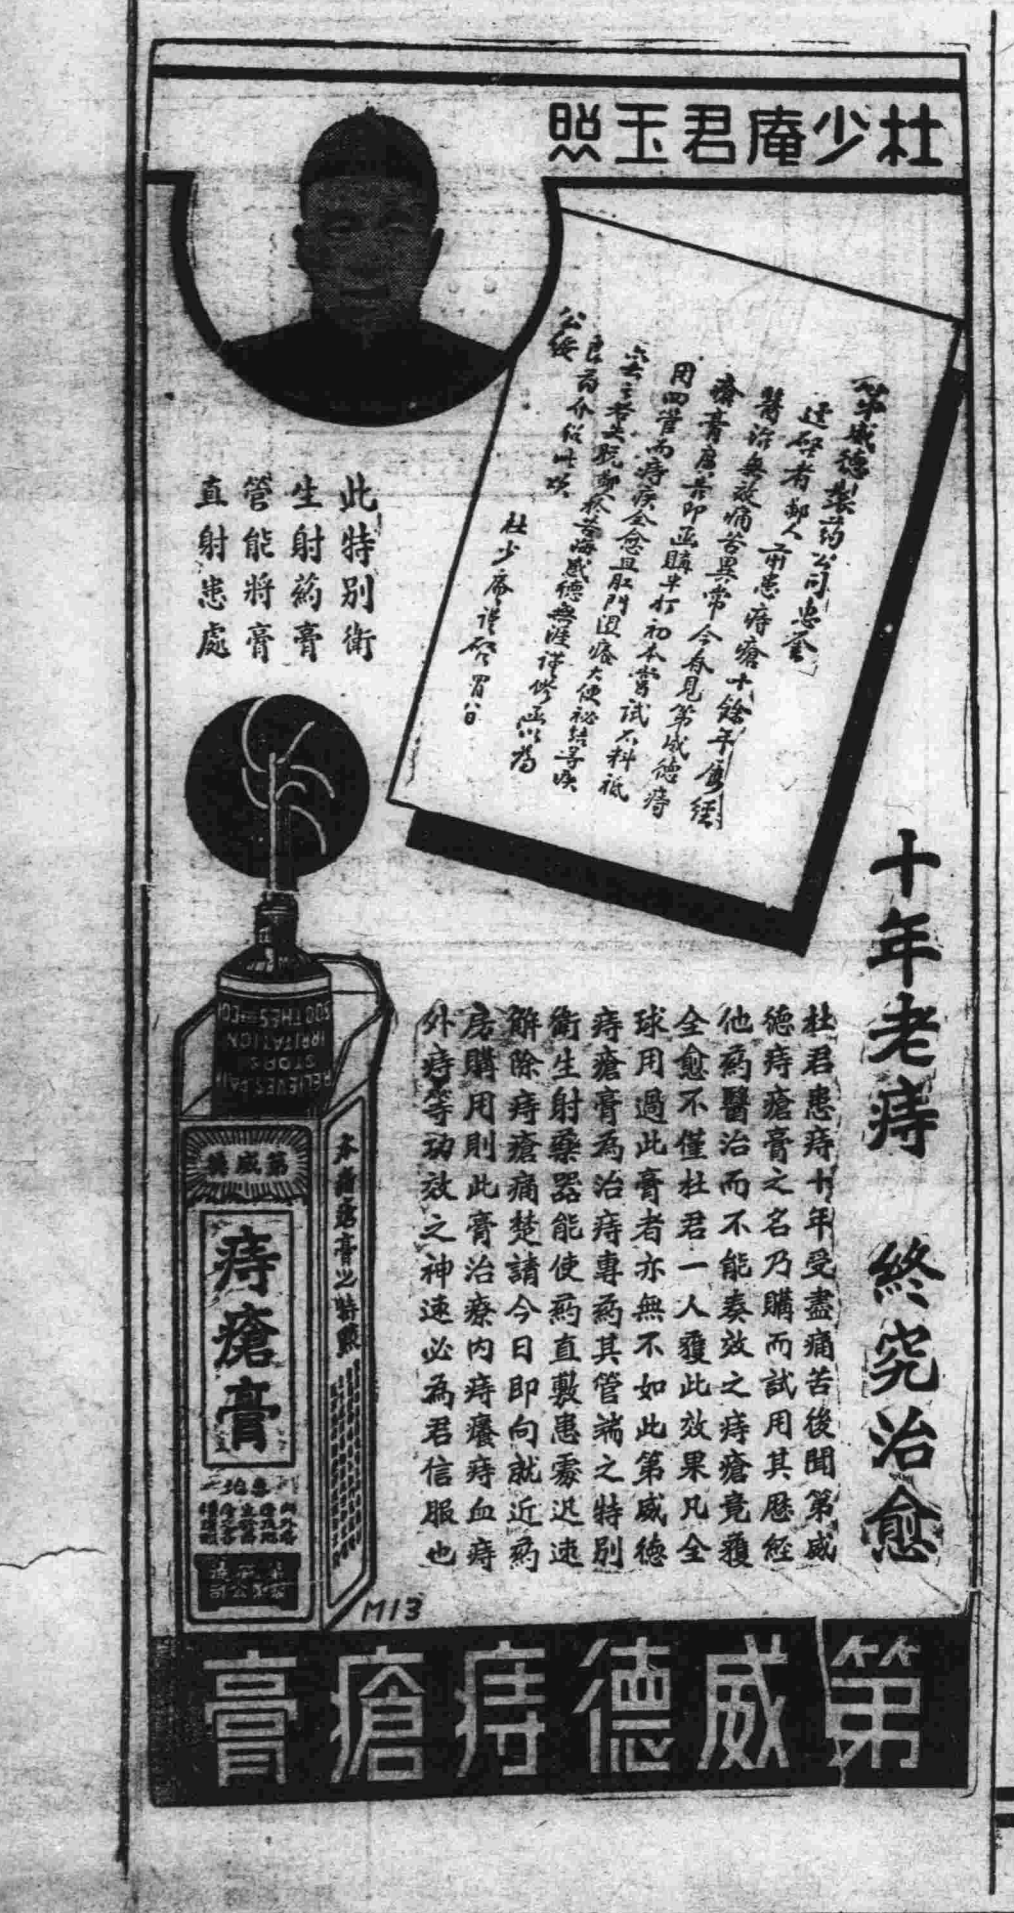 杜少庵君玉照
第威德製药公司惠鉴
逕启者鄙人前患痔瘡十餘年屢經
醫治無效痛苦異常今春見第威德痔
瘡膏廣告即函購半打初本嘗試不料祇
用四管而痔疾全愈且肛門 大便秘結等疾
感德無涯謹修函以為
介紹此頌
公綏
杜少庵謹啓
此特別衛
生射葯膏
管能將膏
直射患處
十年老痔 終究治愈
杜君患痔十年受盡痛苦後聞第威
德痔瘡膏之名乃購而試用其歷經
他葯醫治而不能奏效之痔瘡竟獲
全愈不僅杜君一人獲此效果凡全
球用過此膏者亦無不如此第威德
痔瘡膏為治痔專葯其管端之特別
衛生射藥器能使葯直敷患處迅速
解除痔瘡痛楚請今日即向就近葯
房購用則此膏治療內痔癢痔血痔
外痔等功效之神速必為君信服也
SOOTHES
IRRITATION
STOPS
RELIEVES PAIN
第威德
痔瘡膏
本痔瘡膏之特點
M13
第威德痔瘡膏